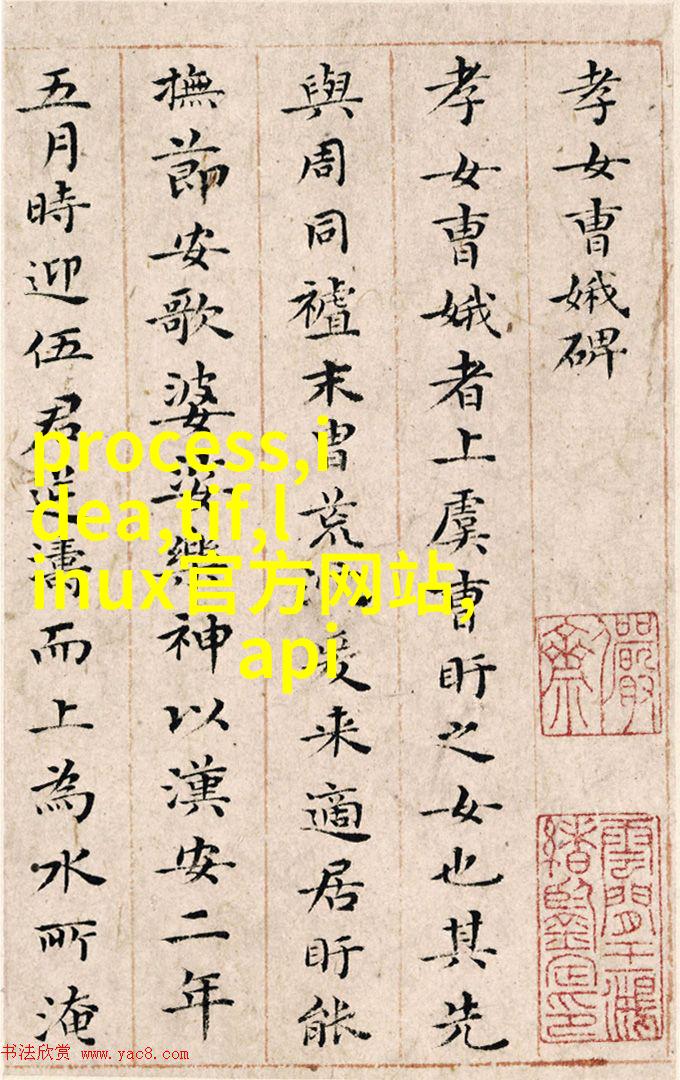 孝女曹娥碑
孝女曹娥者上虞曹盱之女也其先
與周同末胄荒爰来適居盱能
撫節安歌婆娑樂神以漢安二年
五月時迎伍君逆濤而上為水所淹
儼齋
雲間王鴻緒鑒定印
process,i
dea,tif,l
inux官方网站,
api
书法欣赏 www.yac8.com